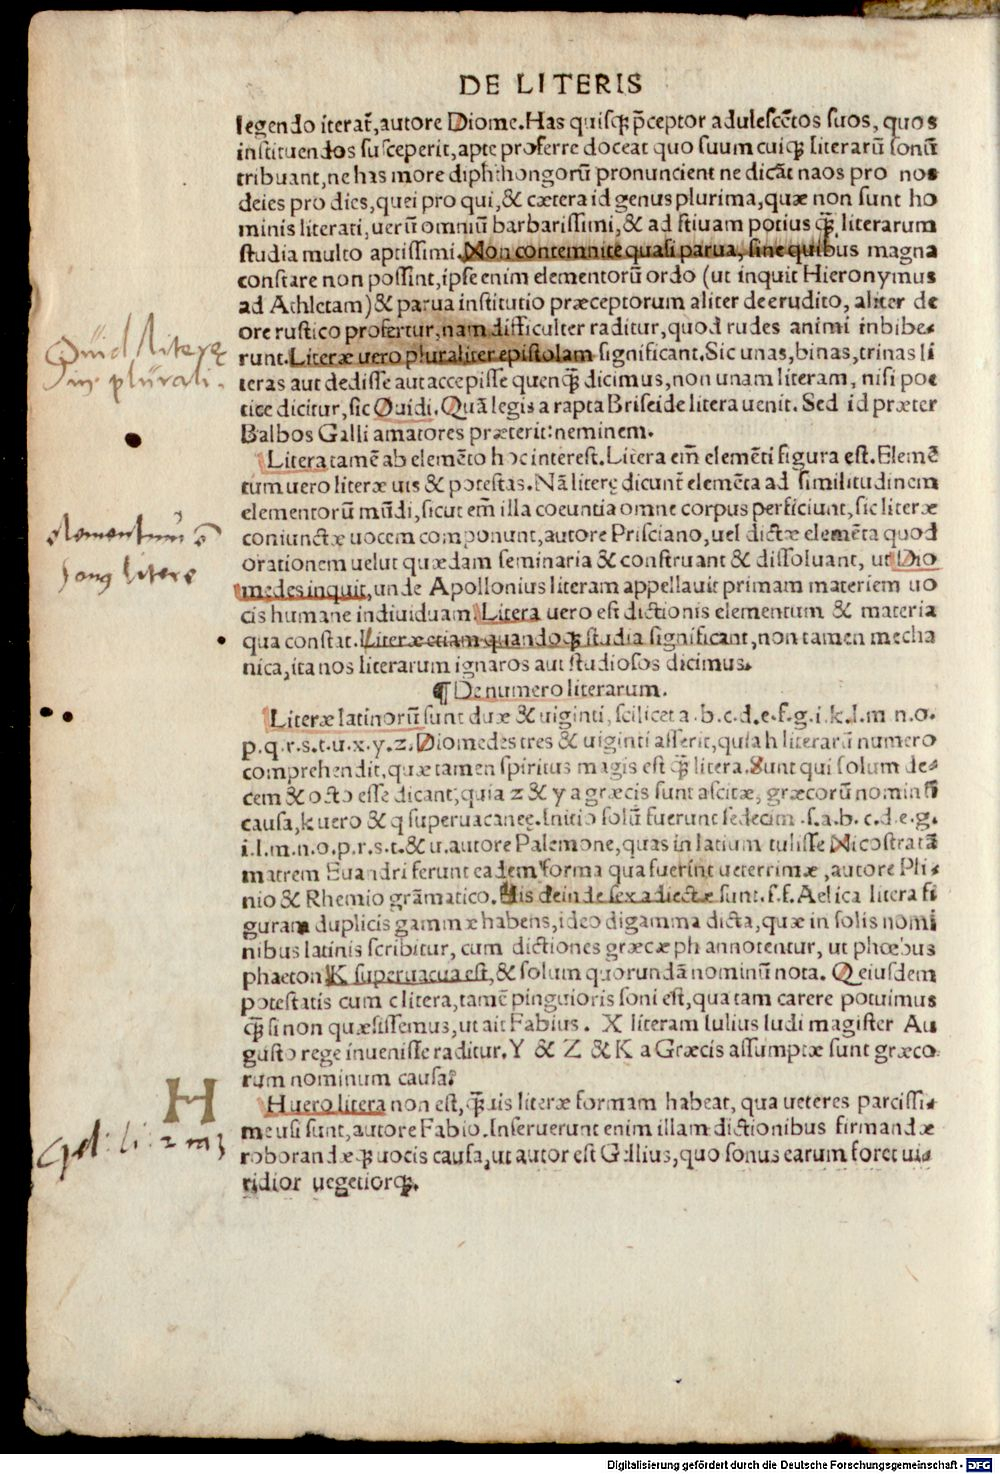 DE LITERIS
legendo iterat̃, autore Diome. Has quisq̃ p̃ceptor adulescẽtos suos, quos
instituendos susceperit, apte proferre doceat quo suum cuiq̃ literarũ sonũ
tribuant, ne has more diphthongorũ pronuncient ne dicãt naos pro nos
deies pro dies, quei pro qui, & cætera id genus plurima, quæ non sunt ho
minis literati, uerũ omniũ barbarissimi, & ad stiuam potius q̃ literarum
studia multo aptissimi. Non contemnite quasi parua, sine quibus magna
constare non possint, ipse enim elementorũ ordo (ut inquit Hieronymus
ad Athletam) & parua institutio præceptorum aliter de erudito, aliter de
ore rustico profertur, nam difficulter raditur, quod rudes animi inbibe-
runt. Literæ uero pluraliter epistolam significant. Sic unas, binas, trinas li
teras aut dedisse aut accepisse quenq̃ dicimus, non unam literam, nisi poe
tice dicitur, sic Ouidi. Quã legis a rapta Briseide litera uenit. Sed id præter
Balbos Galli amatores præterit: neminem.
Quid literę
in plurali.
Litera tamẽ ab elemẽto hoc interest. Litera em̃ elemẽti figura est. Elemẽ
tum uero literæ uis & potestas. Nã literę dicunt̃ elemẽta ad similitudinem
elementorũ mũdi, sicut em̃ illa coeuntia omne corpus perficiunt, sic literæ
coniunctæ uocem componunt, autore Prisciano, uel dictæ elemẽta quod
orationem uelut quædam seminaria & construant & dissoluant, ut Dio
medes inquit, unde Apollonius literam appellauit primam materiem uo
cis humane indiuiduam. Litera uero est dictionis elementum & materia
qua constat. Literæ etiam quandoq̃ studia significant, non tamen mecha
nica, ita nos literarum ignaros aut studiosos dicimus.
elementum ẽ
literę
¶ De numero literarum.
Literæ latinorũ sunt duæ & uiginti, scilicet a.b.c.d.e.f.g.i.k.l.m n.o.
p.q.r.s.t.u.x.y.z. Diomedes tres & uiginti asserit, quia h literarũ numero
comprehendit, quæ tamen spiritus magis est q̃ litera. Sunt qui solum de-
cem & octo esse dicant, quia z & y a græcis sunt ascitæ, græcorũ nominũ
causa, k uero & q superuacaneę. Initio solũ fuerunt sedecim .s.a.b.c.d.e.g.
i.l.m.n.o.p.r.s.t.& u. autore Palemone, quas in latium tulisse Nicostratã
matrem Euandri ferunt eadem forma qua fuerint ueterrimæ, autore Pli-
nio & Rhemio grãmatico. His deinde sex adiectæ sunt. s.f. Aelica litera fi
guram duplicis gammæ habens, ideo digamma dicta, quæ in solis nomi
nibus latinis scribitur, cum dictiones græcæ ph annotentur, ut phœbus
phaeton K superuacua est, & solum quorundã nominũ nota. Q eiusdem
potestatis cum c litera, tamẽ pinguioris soni est, qua tam carere potuimus
q̃ si non quæsissemus, ut ait Fabius. X literam Iulius ludi magister Au
gusto rege inuenisse traditur. Y & Z & K a Græcis assumptæ sunt græco
rum nominum causa.
H
H uero litera non est, q̃uis literæ formam habeat, qua ueteres parcissi-
me usi sunt, autore Fabio. Inseruerunt enim illam dictionibus firmandæ
roborandæq̃ uocis causa, ut autor est Gellius, quo sonus earum foret ui-
ridior uegetiorq̃.
Gel: li: 2
Digitalisierung gefördert durch die Deutsche Forschungsgemeinschaft - DFG